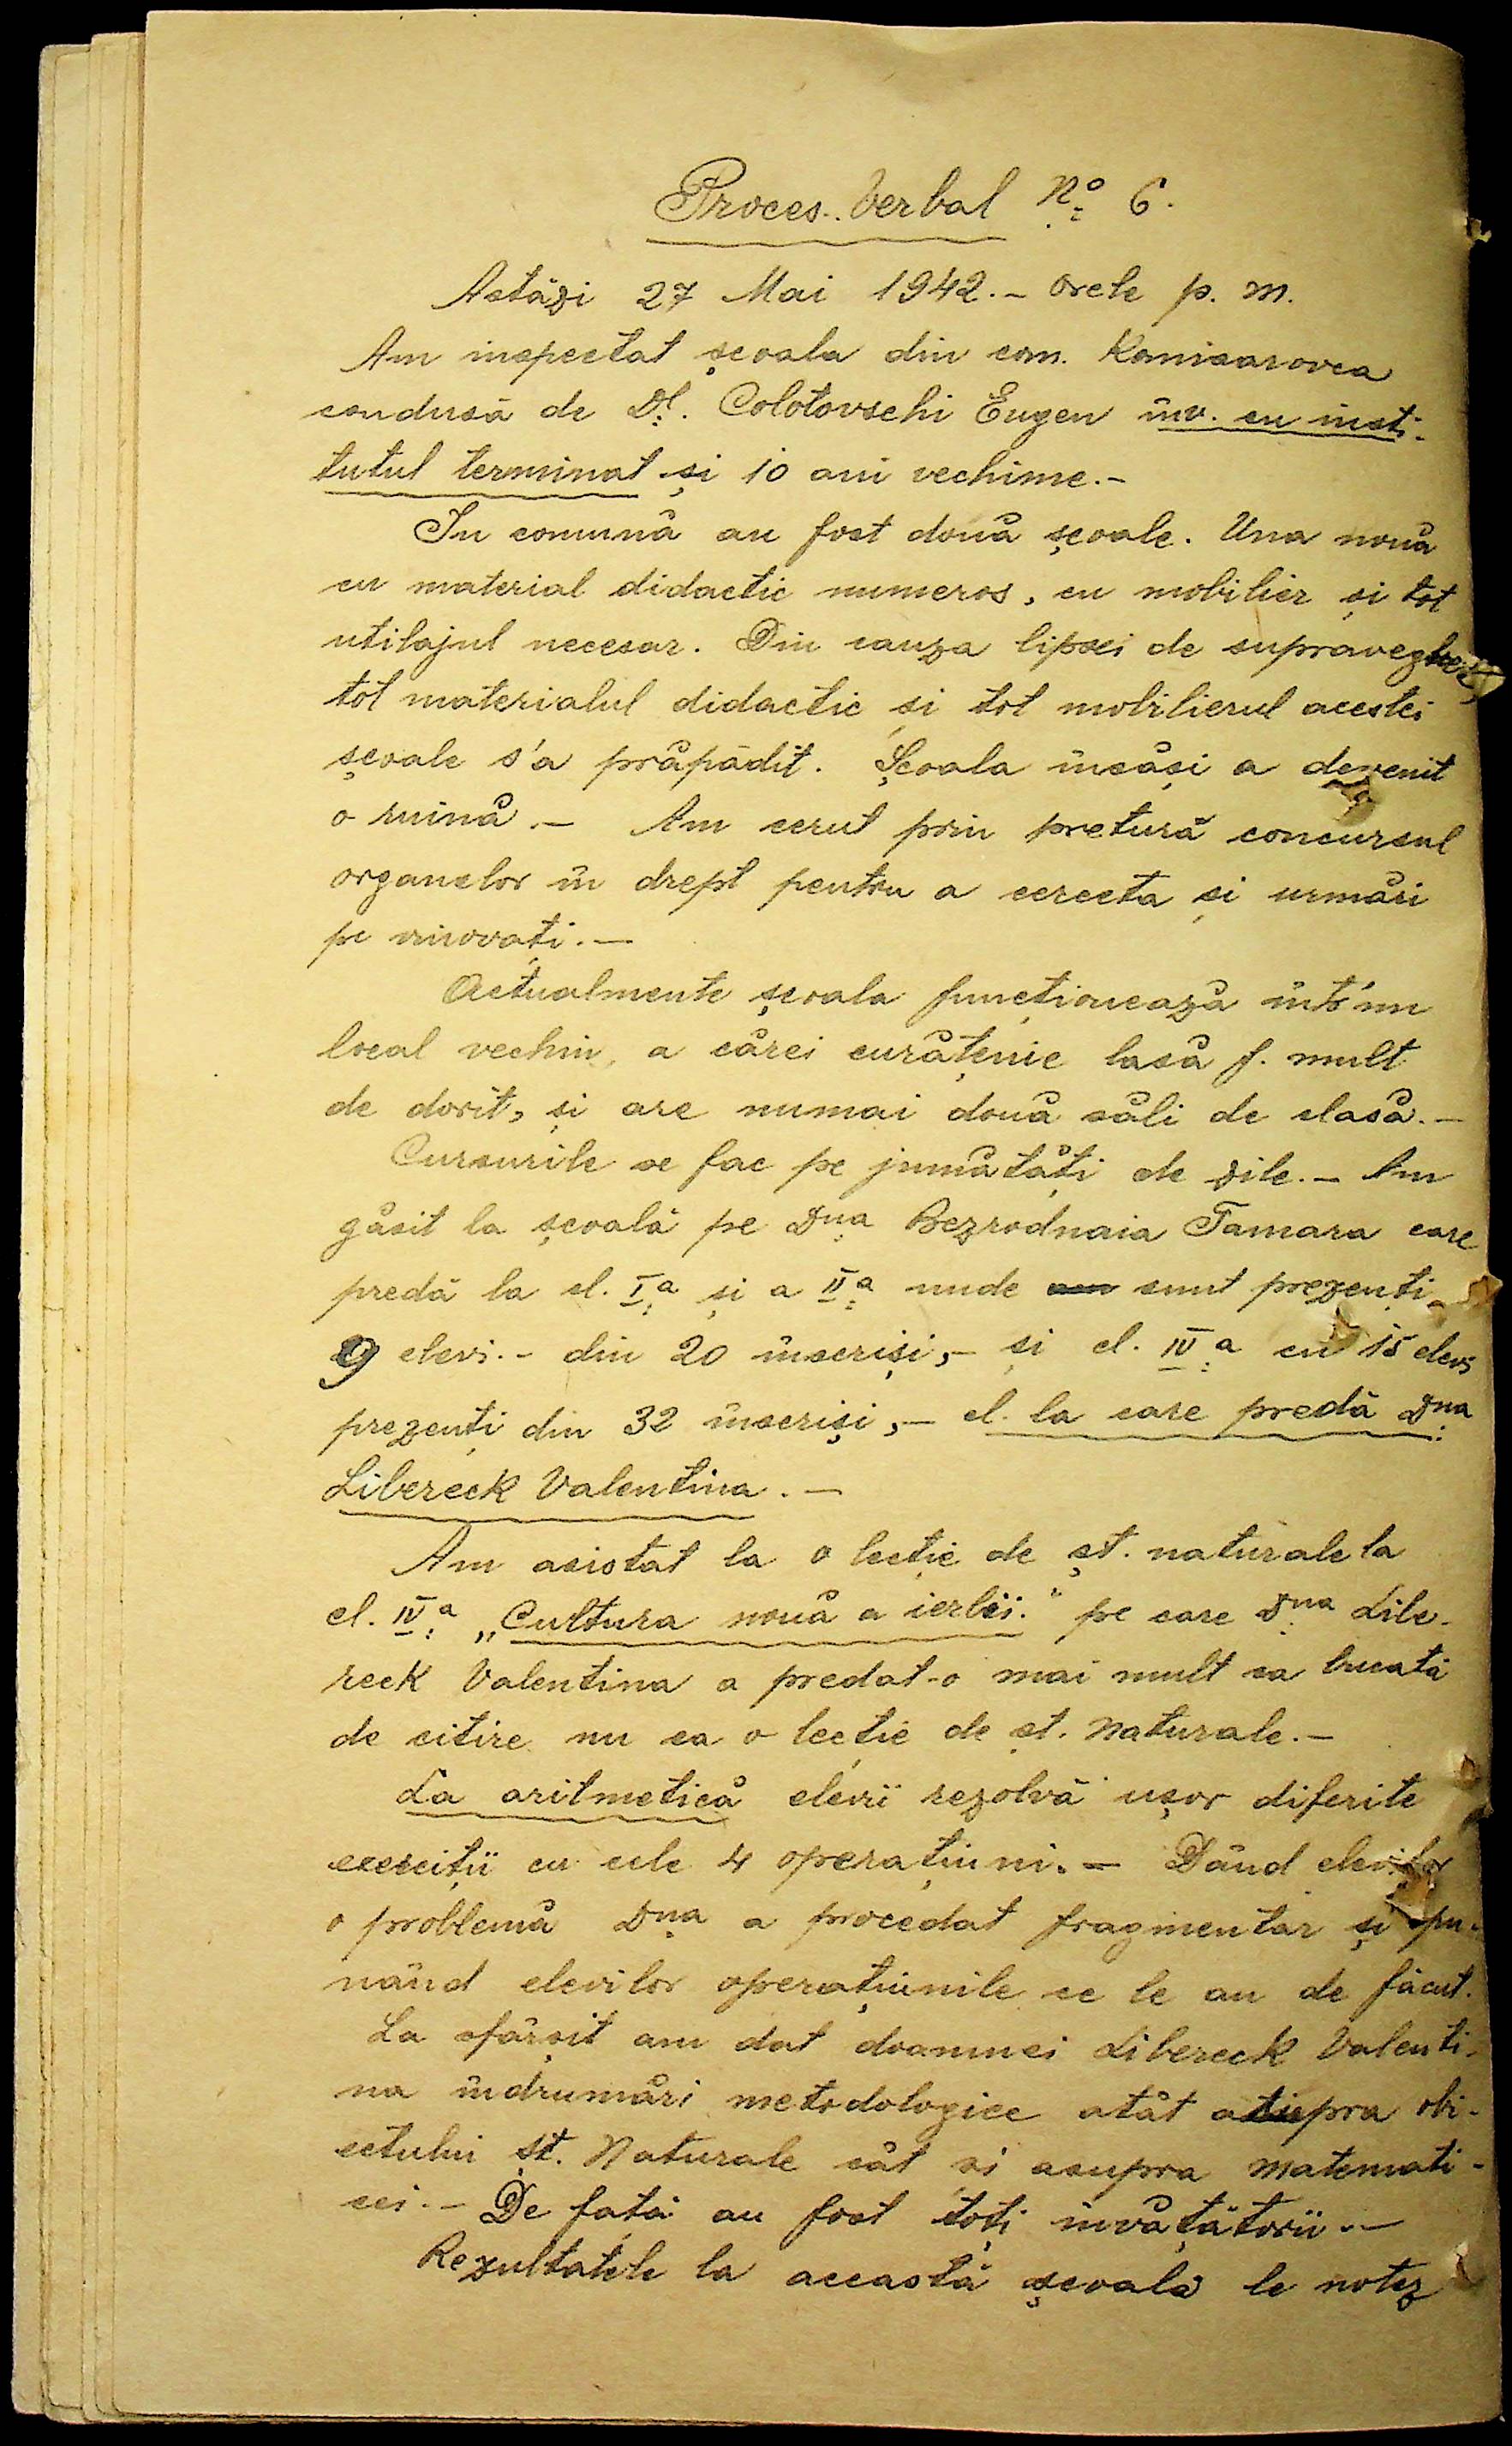 Proces-Verbal Nº 6.
Astăzi 27 Mai 1942.- Orele p. m.
Am inspectat școala din com. Komisarovca
condusă de Dl. Colotovschi Eugen înv. cu insti-
tutul terminat și 10 ani vechime.-
In comună au fost două școale. Una nouă
cu material didactic numeros, cu mobilier și tot
utilajul necesar. Din cauza lipsei de supraveghere,
tot materialul didactic și tot mobilierul acestei
școale s'a prăpădit. Școala însăși a devenit
o ruină.- Am cerut prin pretură concursul
organelor în drept pentru a cerceta și urmări
pe vinovați.-
Actualmente școala funcționează într'un
local vechiu, a cărei curățenie lasă f. mult
de dorit, și are numai două săli de clasă.-
Cursurile se fac pe jumătăți de zile.- Am
găsit la școală pe Dna Bezrodnaia Tamara care
predă la cl. I-a și a II-a unde sunt prezenți
9 elevi.- din 20 înscriși,- și cl. IV-a cu 15 elevi
prezenți din 32 înscriși,- cl. la care predă Dna
Libereck Valentina.-
Am asistat la o lecție de șt. naturale la
cl. IV-a „Cultura nouă a ierbii." pe care Dna Libe-
reck Valentina a predat-o mai mult ca bucată
de citire nu ca o lecție de șt. Naturale.-
La aritmetică elevii rezolvă ușor diferite
exerciții cu cele 4 operațiuni.- Dând elevilor
o problemă Dna a procedat fragmentar și spu-
nând elevilor operațiunile ce le au de făcut.
La sfârșit am dat doamnei Libereck Valenti-
na îndrumări metodologice atât asupra obi-
ectului Șt. Naturale cât și asupra matemati-
cei.- De față au fost toți învățătorii.-
Rezultatele la această școală le notez